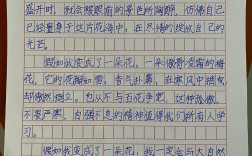 盛开时，就会被眼前的景色所陶醉，仿佛自己
已经置身于这片花海中，在尽情的绽放自己的
光芒。
假如我变成了一朵花，一朵傲骨凌霜的梅
花，它的花瓣如雪，香气扑鼻，在寒风中摇曳，
却傲然挺立，也从不与百花争宠，这种孤傲、
不畏严寒、自强不息的精神值得我们所有人学
习。
假如我变成了一朵花，我一定会与大自然